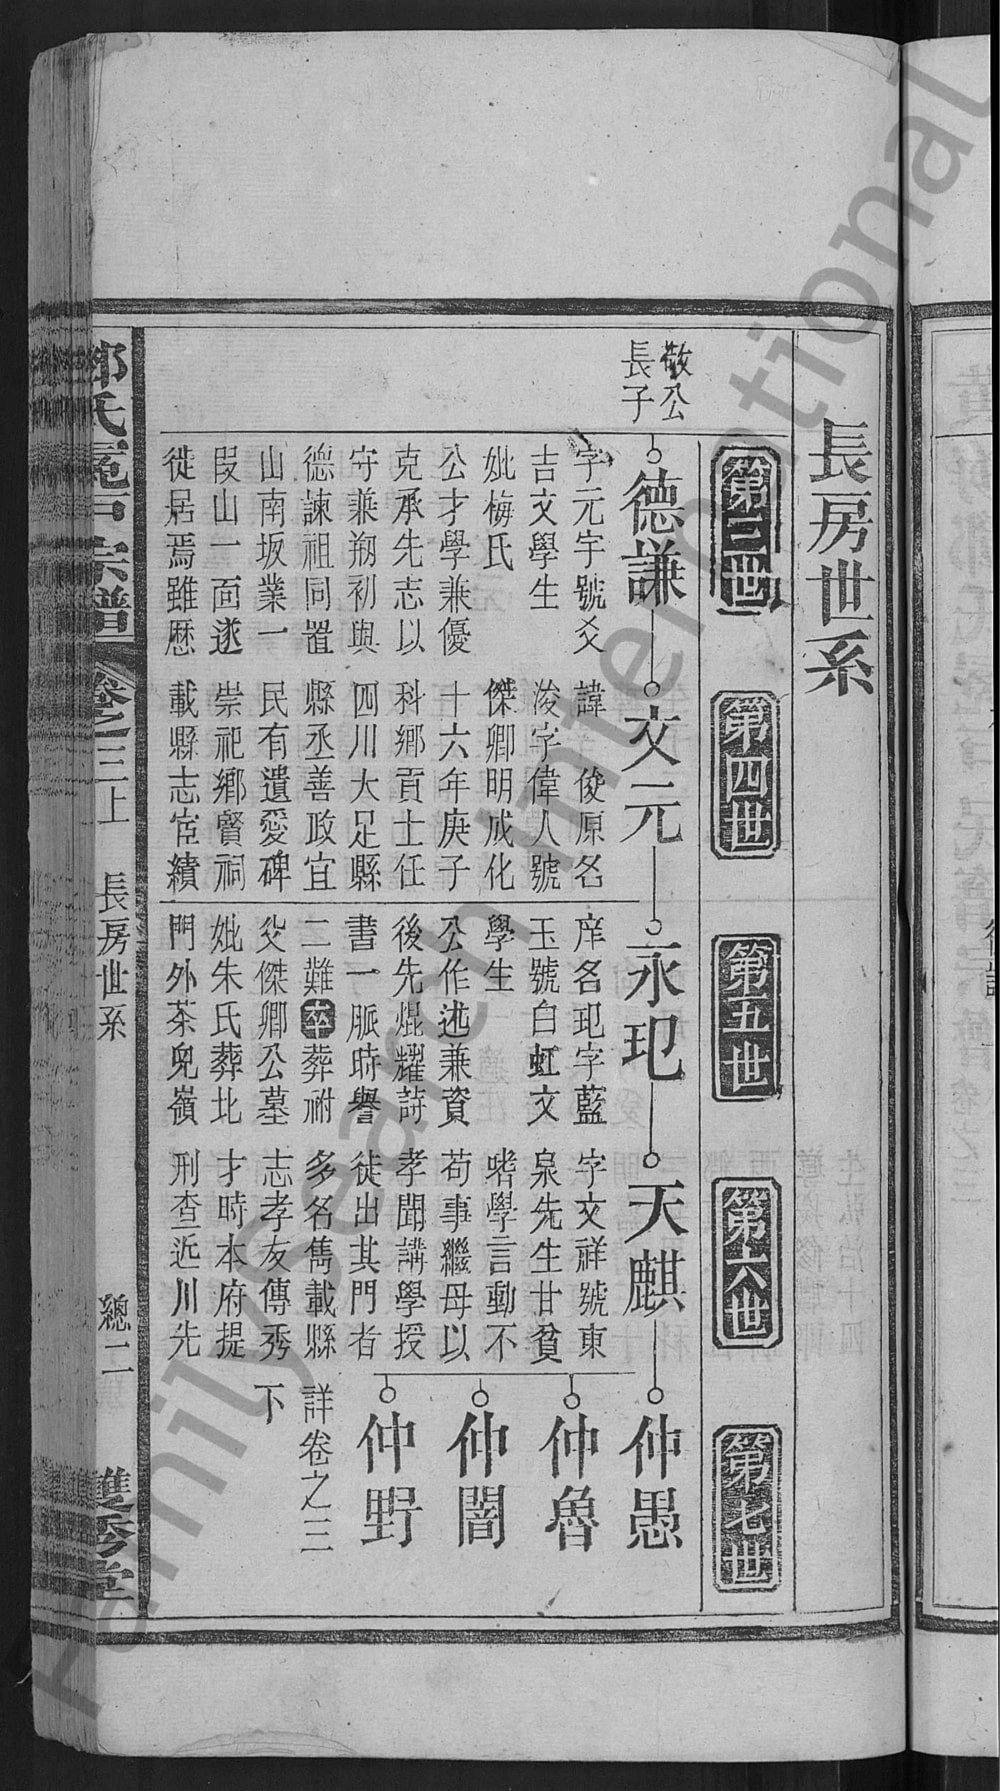 長房世系
第三世
第四世
第五世
第六世
第七世
敬公
長子
德謙
文元
永玘
天麒
仲愚
仲魯
仲闇
仲野
字元宇號爻
吉文學生
妣梅氏
公才學兼優
克承先志以
守兼剏初與
德諫祖同置
山南坂業一
叚山一面遂
徙居焉雖歷
諱俊原名
浚字偉人號
傑卿明成化
十六年庚子
科鄉貢士任
四川大足縣
縣丞善政宜
民有遺愛碑
崇祀鄉賢祠
載縣志宦績
庠名玘字藍
玉號白虹文
學生
公作述兼資
後先焜耀詩
書一脈時譽
二難卒葬祔
父傑卿公墓
妣朱氏葬北
門外茶兒嶺
字文祥號東
泉先生甘貧
嗜學言動不
苟事繼母以
孝聞講學授
徒出其門者
多名雋載縣
志孝友傳秀
才時本府提
刑查近川先
詳卷之三
下
氏宗譜
卷之三上
長房世系
總二
雙秀堂
FamilySearch International